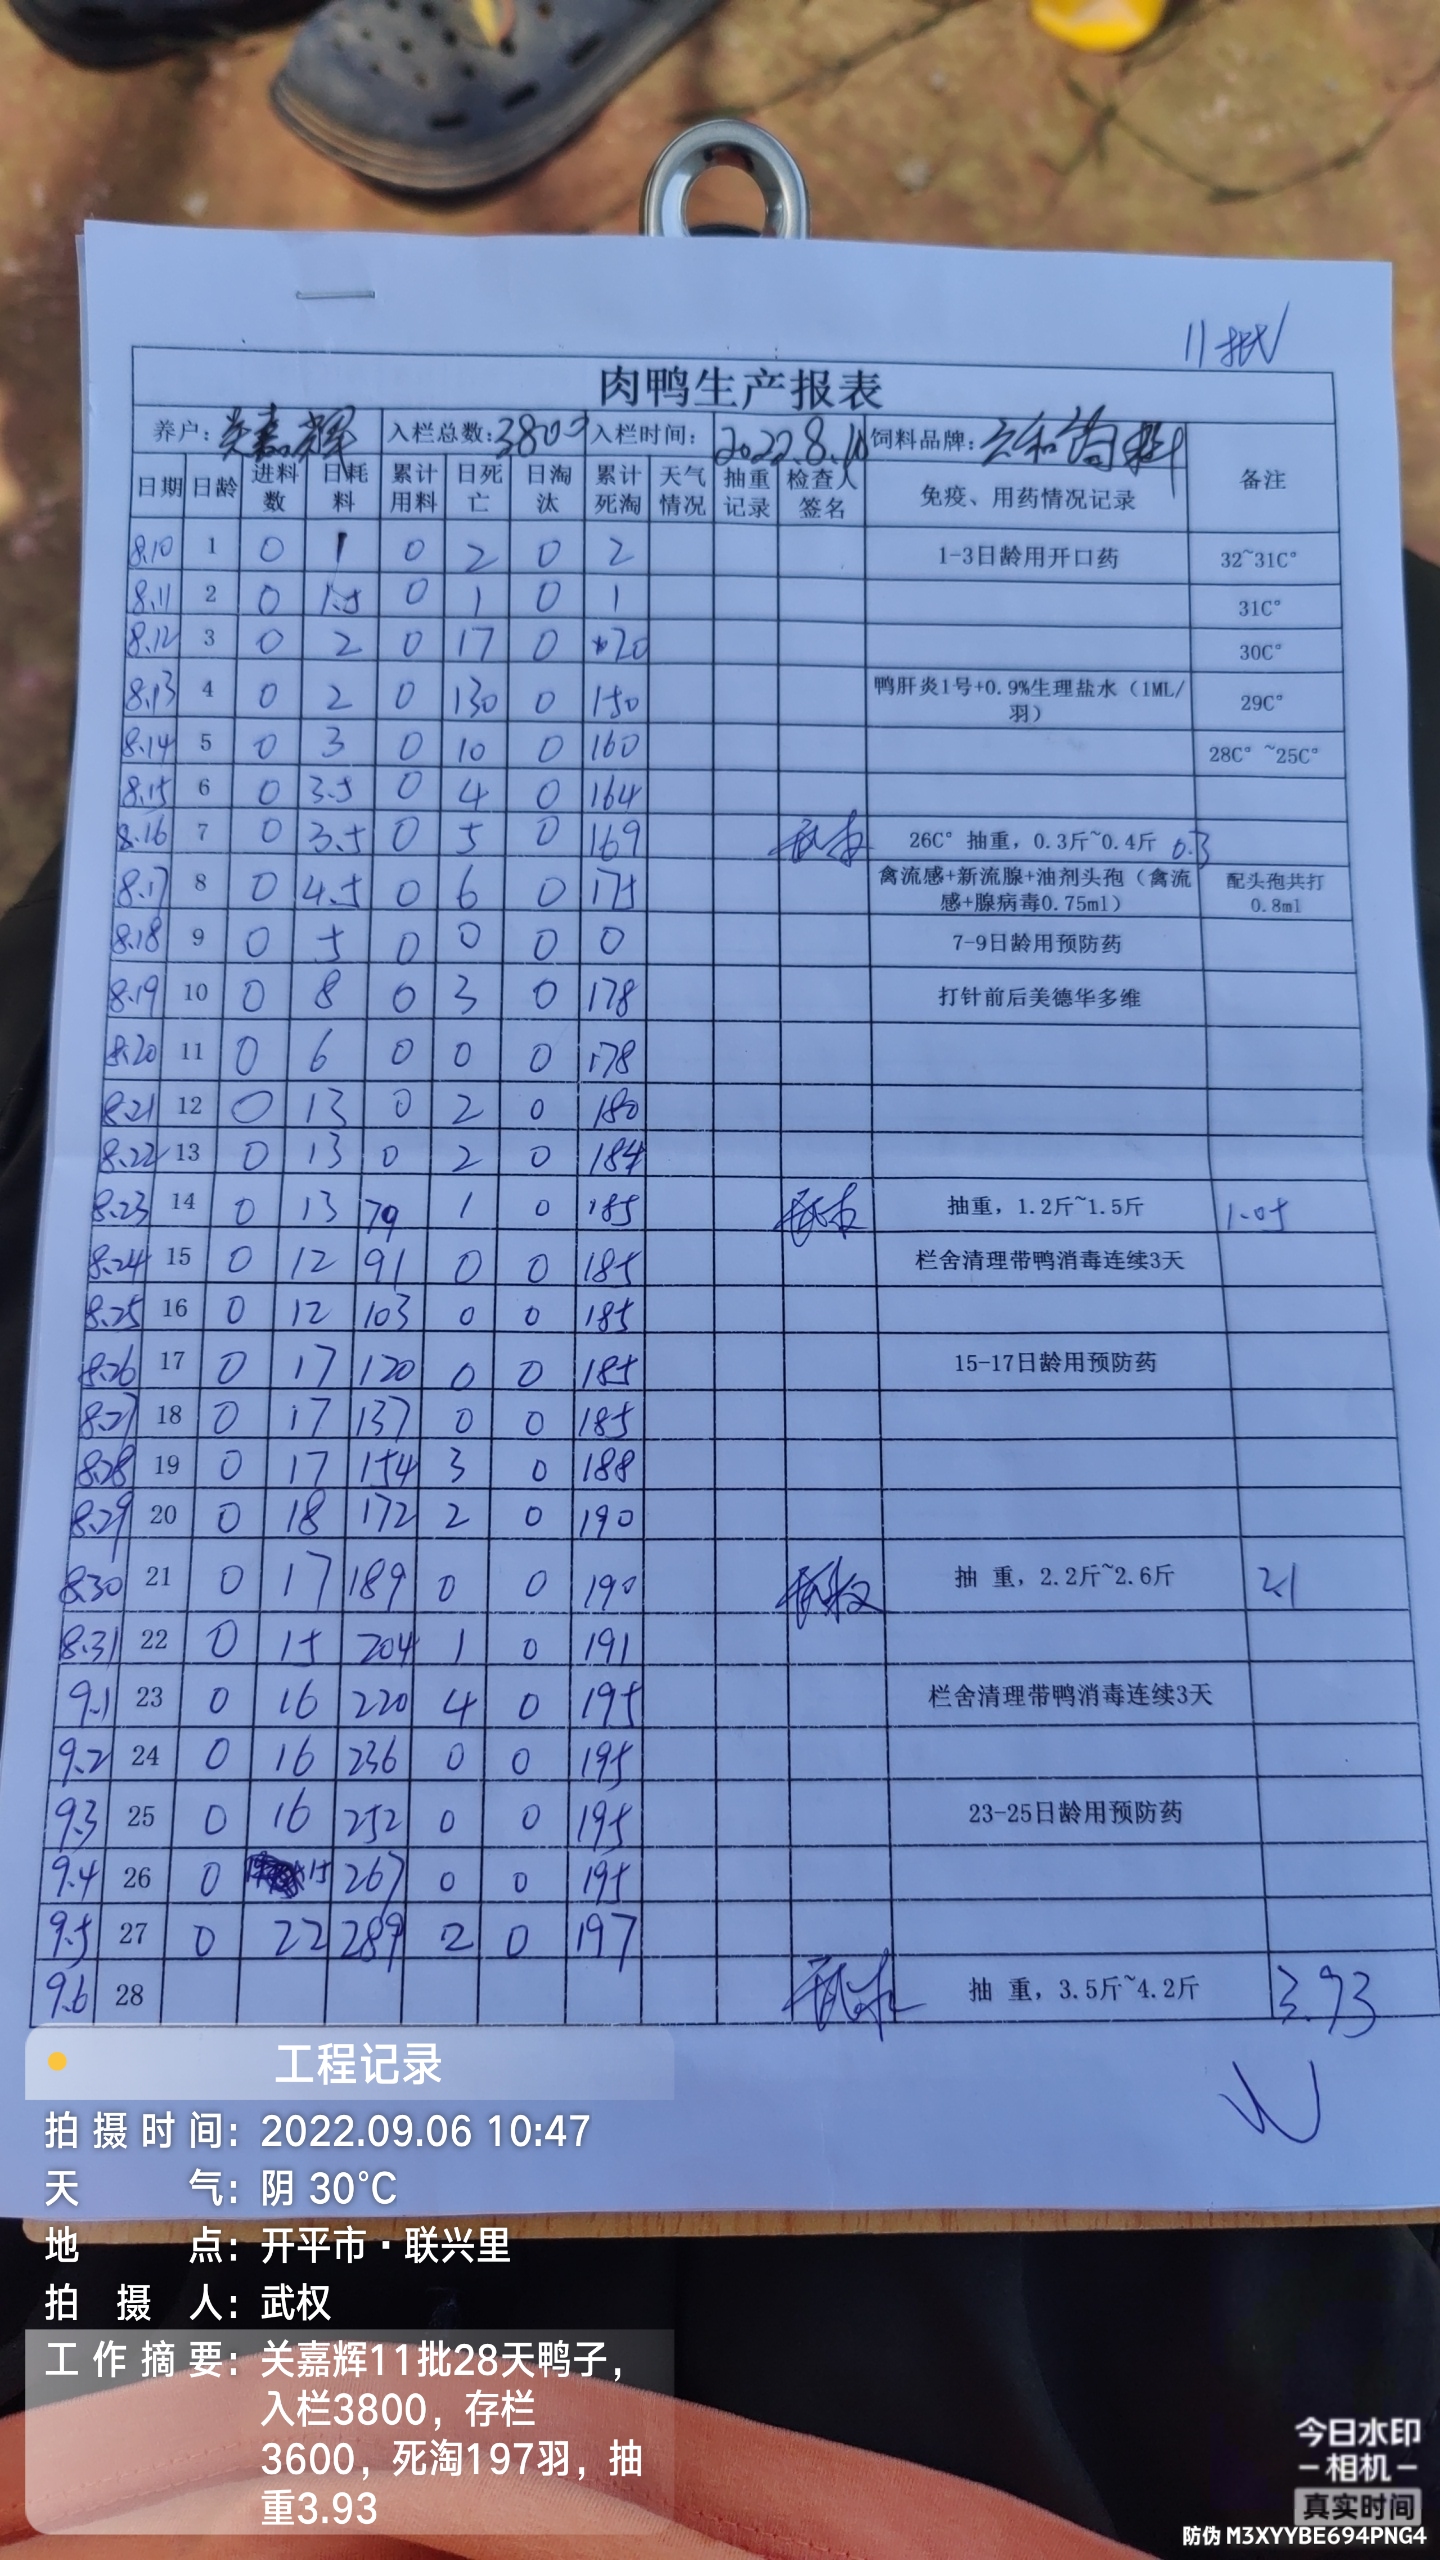 11批
肉鸭生产报表
养户: 关嘉辉 入栏总数: 3800 入栏时间: 2022.8.10 饲料品牌: 六和饲料 备注
日期 日龄 进料数 日耗料 累计用料 日死亡 日淘汰 累计死淘 天气情况 抽重记录 检查人签名 免疫、用药情况记录
8.10 1 0 1 0 2 0 2 1-3日龄用开口药 32~31C°
8.11 2 0 1.5 0 1 0 1 31C°
8.12 3 0 2 0 17 0 20 30C°
8.13 4 0 2 0 130 0 150 鸭肝炎1号+0.9%生理盐水（1ML/羽） 29C°
8.14 5 0 3 0 10 0 160 28C° ~25C°
8.15 6 0 3.5 0 4 0 164
8.16 7 0 3.5 0 5 0 169 武权 26C° 抽重, 0.3斤~0.4斤 0.3
8.17 8 0 4.5 0 6 0 175 禽流感+新流腺+油剂头孢（禽流感+腺病毒0.75ml） 配头孢共打0.8ml
8.18 9 0 5 0 0 0 0 7-9日龄用预防药
8.19 10 0 8 0 3 0 178 打针前后美德华多维
8.20 11 0 6 0 0 0 178
8.21 12 0 13 0 2 0 180
8.22 13 0 13 0 2 0 184
8.23 14 0 13 79 1 0 185 武权 抽重, 1.2斤~1.5斤 1.05
8.24 15 0 12 91 0 0 185 栏舍清理带鸭消毒连续3天
8.25 16 0 12 103 0 0 185
8.26 17 0 17 120 0 0 185 15-17日龄用预防药
8.27 18 0 17 137 0 0 185
8.28 19 0 17 154 3 0 188
8.29 20 0 18 172 2 0 190
8.30 21 0 17 189 0 0 190 武权 抽 重, 2.2斤~2.6斤 2.1
8.31 22 0 15 204 1 0 191
9.1 23 0 16 220 4 0 195 栏舍清理带鸭消毒连续3天
9.2 24 0 16 236 0 0 195
9.3 25 0 16 252 0 0 195 23-25日龄用预防药
9.4 26 0 15 267 0 0 195
9.5 27 0 22 289 2 0 197
9.6 28 武权 抽 重, 3.5斤~4.2斤 3.93
工程记录
拍摄时间: 2022.09.06 10:47
天气: 阴 30°C
地点: 开平市·联兴里
拍摄人: 武权
工作摘要: 关嘉辉11批28天鸭子，
入栏3800，存栏
3600，死淘197羽，抽
重3.93
今日水印
相机
真实时间
防伪 M3XYYBE694PNG4